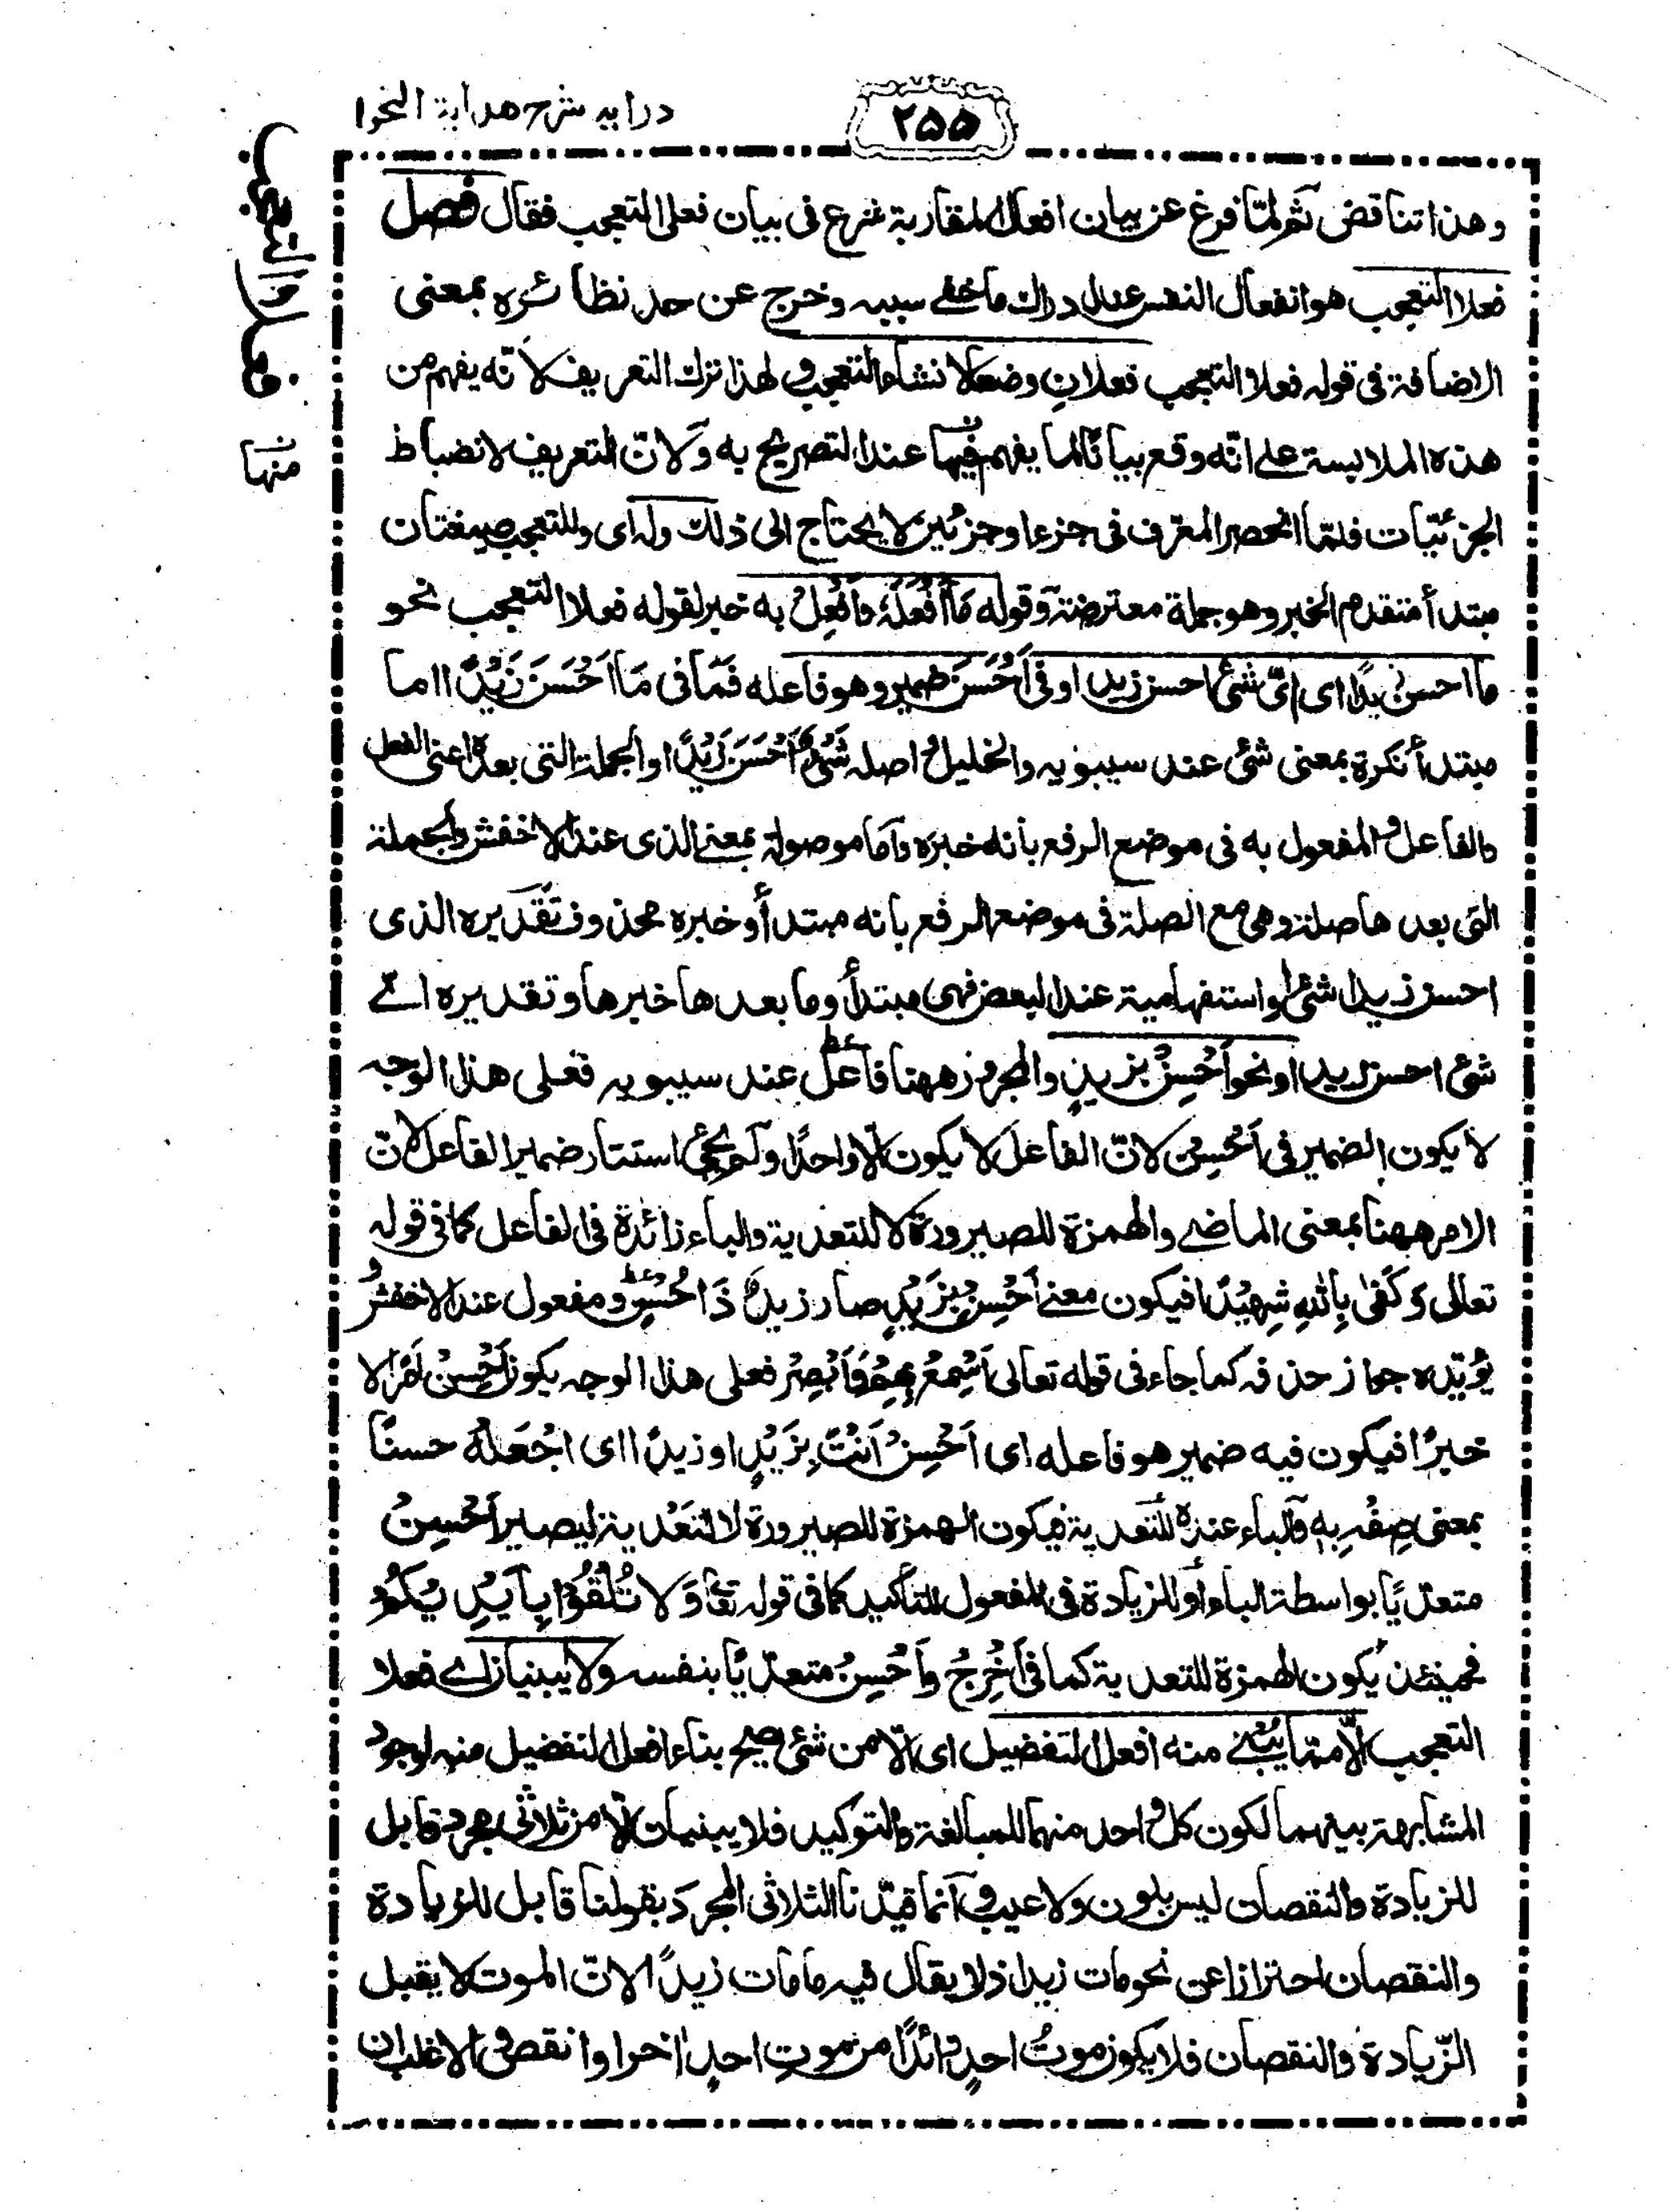 درايه شرح هداية النحو
٢٥٥
وهذا تناقض ثم لمّا فرغ عن بيان افعال المقاربة شرع فى بيان فعلى التعجب فقال فصل
فعلا التعجب هو انفعال النفس عند ادراك ما خفى سببه وخرج عن حد نظائره بمعنى
الاضافة فى قوله فعلا التعجب فعلان وضعا لانشاء التعجب ولهذا ترك التعريف لانّه يفهم من
هذه الملابسة على انّه وقع بيانًا لما يفهم فيها عند التصريح به ولانّ التعريف لانضباط
الجزئيّات فلمّا انحصر المعرّف فى جزء او جزئين لا يحتاج الى ذلك وله اى وللتعجب صيغتان
مبتدأ متقدم الخبر وهو جملة معترضة وقوله مَا أَفْعَلَهُ وَأَفْعِلْ به خبر لقوله فعلا التعجب نحو
ما احسن زيدًا اى اىّ شئ احسن زيدا وفى اَحْسَنَ ضمير وهو فاعله فَمَا فى مَا اَحْسَنَ زَيْدًا اما
مبتدأ نكرة بمعنى شئ عند سيبويه والخليل واصله شَئٌ اَحْسَنَ زَيْدًا والجملة التى بعده اعنى الفعل
والفاعل والمفعول به فى موضع الرفع بانه خبره واما موصولة بمعنى الذى عند الاخفش والجملة
التى بعدها صلة وهى مع الصلة فى موضع الرفع بانه مبتدأ وخبره محذوف تقديره الذى
احسن زيدا شئ او استفهامية عند البعض فهى مبتدأ وما بعدها خبرها وتقديره اىّ
شئ احسن زيدا ونحو اَحْسِنْ بزيدٍ والمجرور ههنا فاعلٌ عند سيبويه فعلى هذا الوجه
لا يكون الضمير فى اَحْسِنْ لانّ الفاعل لا يكون الّا واحدًا ولم يجئ استتار ضمير الفاعل لانّ
الامر ههنا بمعنى الماضى والهمزة للصيرورة لا للتعدية والباء زائدة فى الفاعل كما فى قوله
تعالى وَكَفٰى بِاللهِ شَهِيْدًا فيكون معنى اَحْسِنْ بِزَيْدٍ صار زيدٌ ذَا حُسْنٍ ومفعول عند الاخفش و
يؤيّده جواز حذفه كما جاء فى قوله تعالى اَسْمِعْ بِهِمْ وَاَبْصِرْ فعلى هذا الوجه يكون اَحْسِنْ اَمْرًا لا
خبرًا فيكون فيه ضمير هو فاعله اى اَحْسِنْ اَنْتَ بِزَيْدٍ او زيدًا اى اجْعَلْهُ حسنًا
بمعنى صِفْه بِهٖ والباء عنده للتعدية فيكون الهمزة للصيرورة لا للتعْدية ليصير اَحْسِنْ
متعدّيًا بواسطة الباء او للزيادة فى المفعول للتأكيد كما فى قوله تعا وَلا تُلْقُوْا بِاَيْدِيْكُمْ
فحينئذ يكون الهمزة للتعدية كما فى اَخْرِجْ واَحْسِنْ متعدّيًا بنفسه ولا يبنيان اى فعلا
التعجب الّا ممّا يُبْنٰى منه افعل التفضيل اى الّا من شئ يصح بناء افعل التفضيل منه لوجود
المشابهة بينهما لكون كل واحد منهما للمبالغة والتوكيد فلا يبنيان الّا من ثلاثى مجرد قابل
للزيادة والنقصان ليس بلون ولا عيب وانما قيّدنا الثلاثى المجرد بقولنا قابل للزيادة
والنقصان احترازا عن نحو مات زيد اذ لا يقال فيه ما مات زيدًا لانّ الموت لا يقبل
الزّيادة والنقصان فلا يكون موتُ احدٍ زائدًا من موتِ احدٍ اٰخر او انقص والاغلب ان